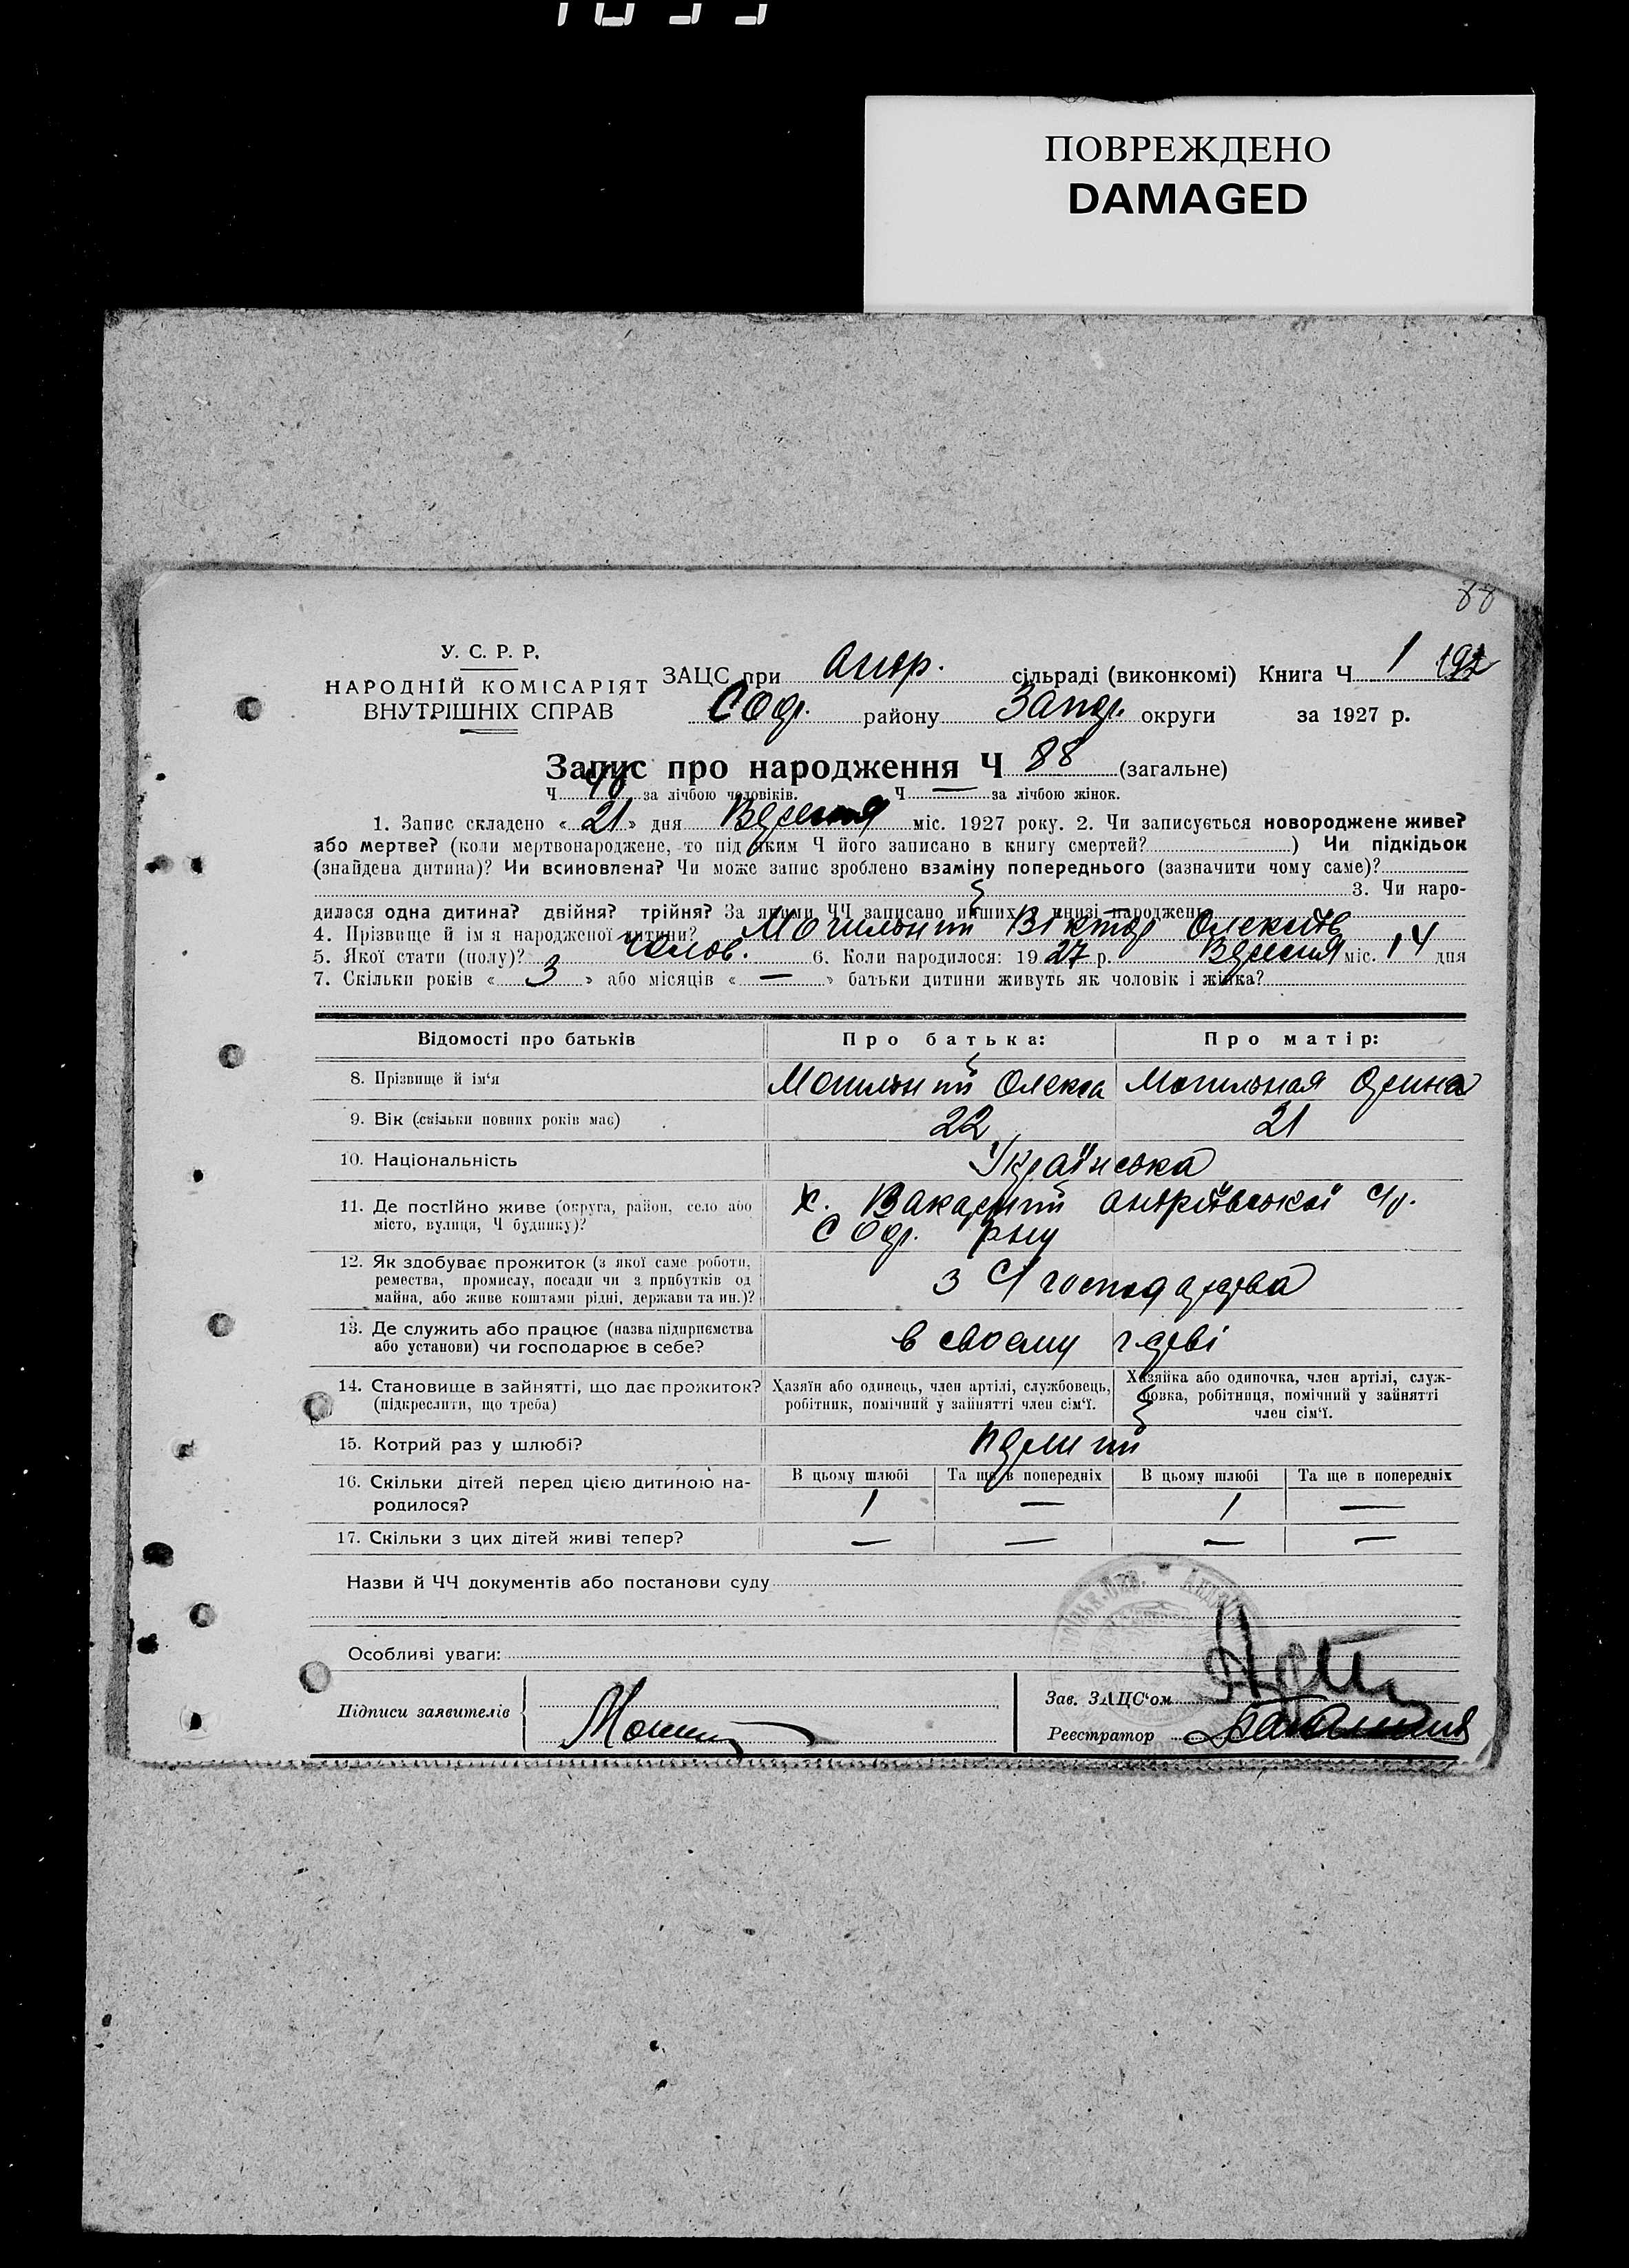 ПОВРЕЖДЕНО
DAMAGED
88
У. С. Р. Р.
НАРОДНІЙ КОМІСАРІЯТ
ВНУТРІШНІХ СПРАВ
ЗАЦС при Андр. сільраді (виконкомі) Книга Ч 1 192
Соф. району Запор. округи за 1927 р.
Запис про народження Ч 88 (загальне)
Ч 48 за лічбою чоловіків. Ч — за лічбою жінок.
1. Запис складено « 21 » дня Вересня міс. 1927 року. 2. Чи записується новороджене живе?
або мертве? (коли мертвонароджене, то під яким Ч його записано в книгу смертей? ) Чи підкідьок
(знайдена дитина)? Чи всиновлена? Чи може запис зроблено взаміну попереднього (зазначити чому саме)?
3. Чи наро-
дилася одна дитина? двійня? трійня? За якими ЧЧ записано инших в книзі народжень
4. Прізвище й ім'я народженої дитини? Могильний Віктор Олексіїв
5. Якої стати (полу)? Чолов. 6. Коли народилося: 1927 р. Вересня міс. 14 дня
7. Скільки років « 3 » або місяців « — » батьки дитини живуть як чоловік і жінка?
Відомості про батьків
Про батька:
Про матір:
8. Прізвище й ім'я
Могильний Олекса
Могильная Орина
9. Вік (скільки повних років має)
22
21
10. Національність
Українська
11. Де постійно живе (округа, район, село або
місто, вулиця, Ч будинку)?
х. Вакарний Андріївської с/р.
Соф. р-ну
12. Як здобуває прожиток (з якої саме роботи,
ремества, промислу, посади чи з прибутків од
майна, або живе коштами рідні, держави та ин.)?
з с/господарства
13. Де служить або працює (назва підприємства
або установи) чи господарює в себе?
в своєму г-дрві
14. Становище в зайнятті, що дає прожиток?
(підкреслити, що треба)
Хазяїн або одинець, член артілі, службовець,
робітник, помічний у зайнятті член сім'ї.
Хазяйка або одиночка, член артілі, служ-
бовка, робітниця, помічний у зайнятті
член сім'ї.
15. Котрий раз у шлюбі?
перший
16. Скільки дітей перед цією дитиною на-
родилося?
В цьому шлюбі
Та ще в попередніх
В цьому шлюбі
Та ще в попередніх
1 — 1 —
17. Скільки з цих дітей живі тепер?
— — — —
Назви й ЧЧ документів або постанови суду
Особливі уваги:
Підписи заявителів
Зав. ЗАЦС'ом
Реєстратор